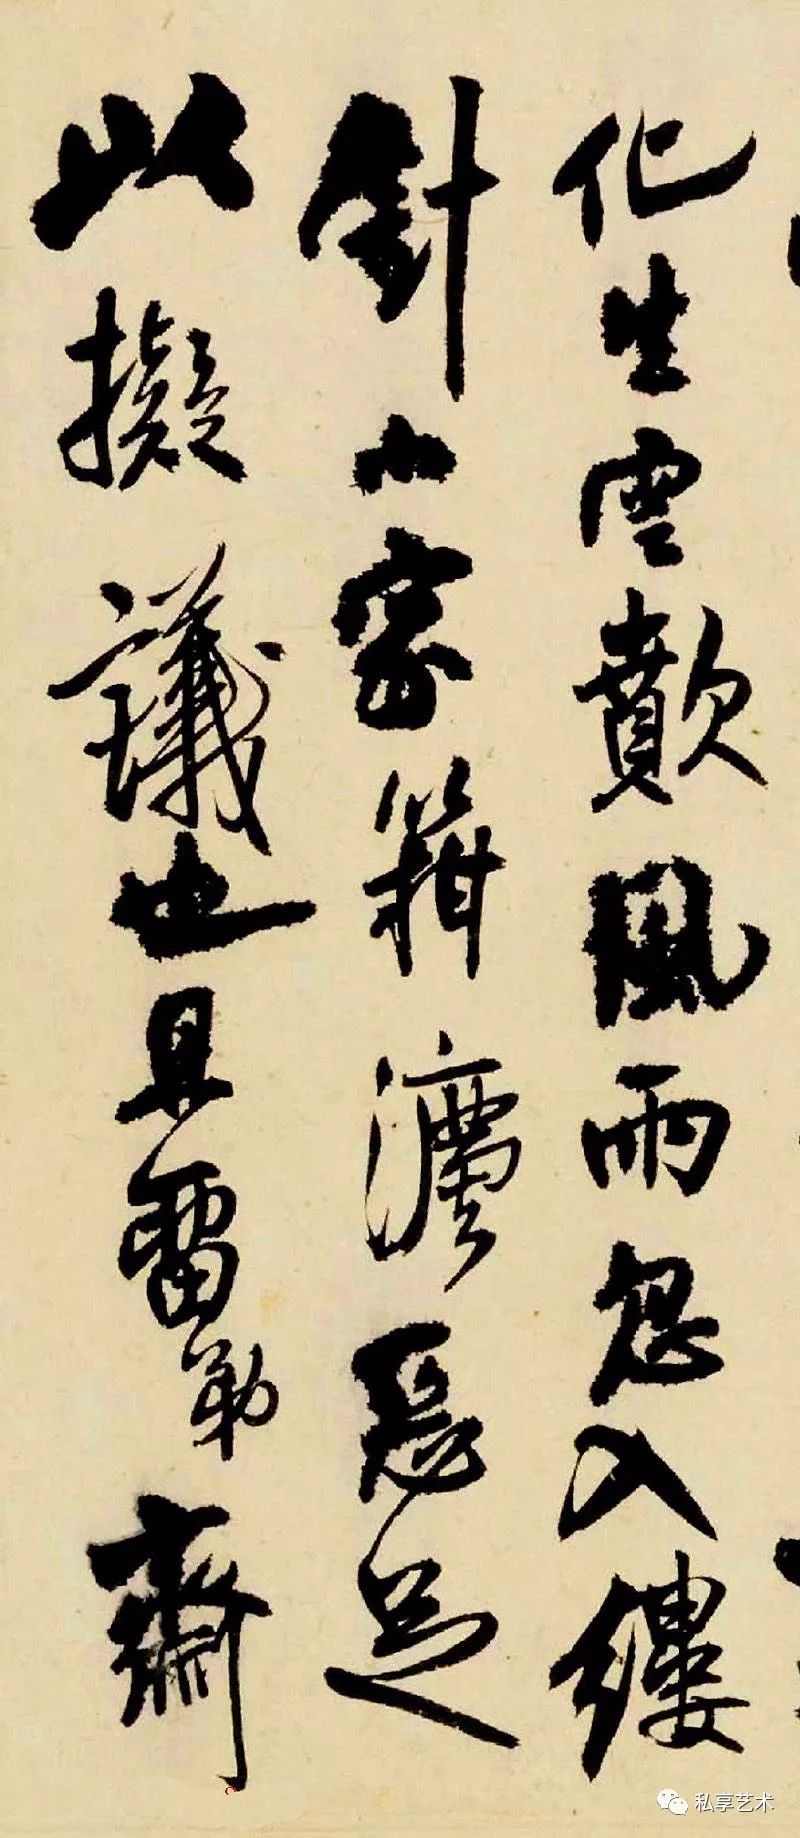 化生雲歕風雨忽入縷
針小家籍澧惡足
以擬議也具留勒齋
私享艺术